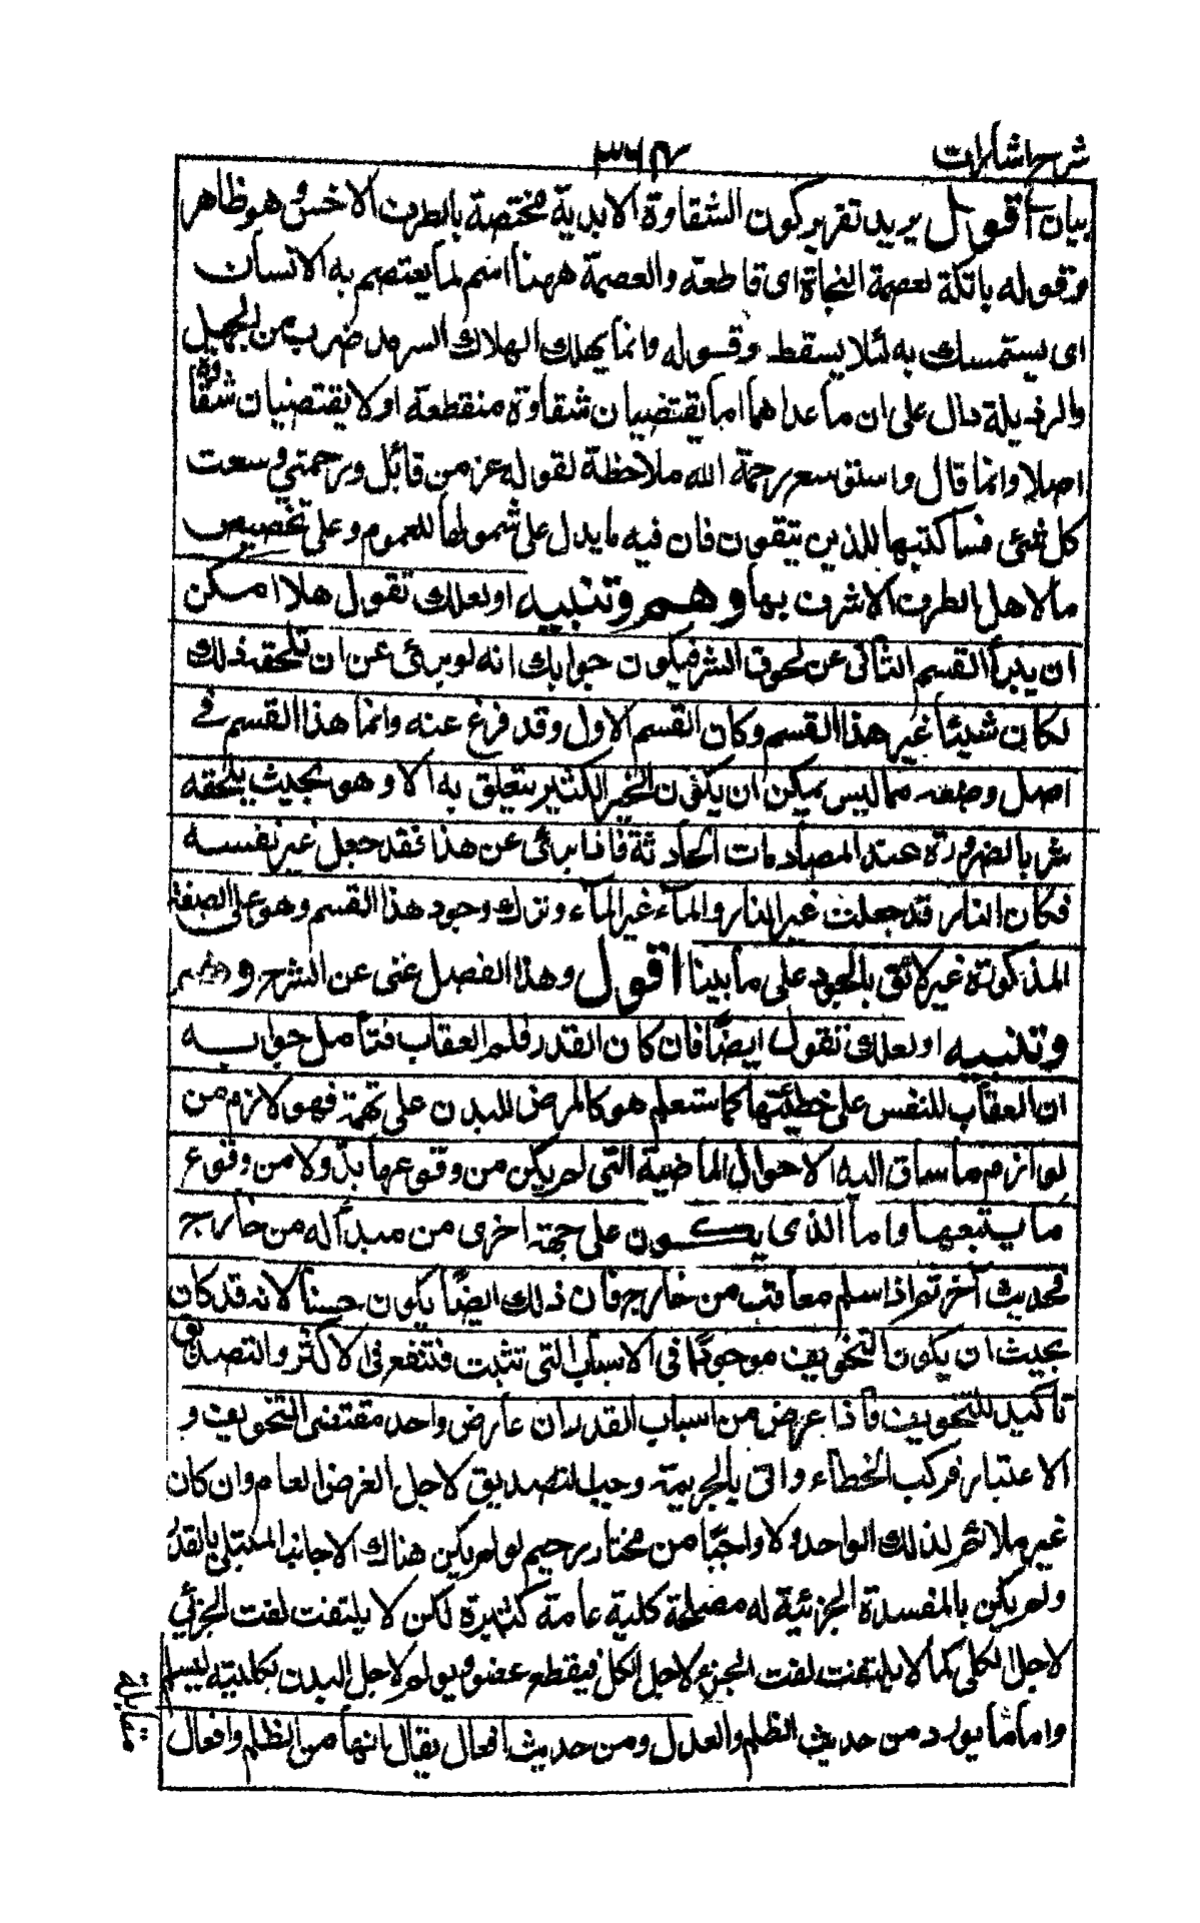 شرح اشارات
بيان اقول يريد تقرير كون الشقاوة الابدية مختصة بالطرف الاخس وهو ظاهر
وقوله باتكة لعصمة النجاة اى قاطعة والعصمة ههنا اسم لما يعتصم به الانسان
اى يستمسك به لئلا يسقط وقوله وانما يهلك الهلاك السرمد ضرب من الجهل
والرذيلة دال على ان ما عداهما اما يقتضيان شقاوة منقطعة او لا يقتضيان شقاوة
اصلا وانما قال واستوسع رحمة الله ملاحظة لقوله عز من قائل ورحمتي وسعت
كل شئ فسأكتبها للذين يتقون فان فيه ما يدل على شمولها للعموم وعلى تخصيص
ما لاهل الطرف الاشرف بها وهم وتنبيه او لعلك تقول هلا امكن
ان يبرأ القسم الثانى عن لحوق الشر فيكون جوابك انه لو برئ عن ان تلحقه ذلك
لكان شيئا غير هذا القسم وكان القسم الاول وقد فرغ عنه وانما هذا القسم فى
اصل وضعه مما ليس يمكن ان يكون الخير الكثير يتعلق به الا وهو بحيث يلحقه
شر بالضرورة عند المصادمات الحادثة فاذا برئ عن هذا فقد جعل غير نفسه
فكان النار قد جعلت غير النار والماء غير الماء وترك وجود هذا القسم وهو على الصفة
المذكورة غير لائق بالجود على ما بينا اقول وهذا الفصل غنى عن الشرح وهم
وتنبيه او لعلك تقول ايضا فان كان القدر فلم العقاب فتأمل جوابه
ان العقاب للنفس على خطيئتها كما ستعلم هو كالمرض للبدن على نهمة فهو لازم من
لوازم ما ساق اليه الاحوال الماضية التى لم يكن من وقوعها بد ولا من وقوع
ما يتبعها واما الذى يكون على جهة اخرى من مبدأ له من خارج
فحديث آخر ثم اذا سلم معاقب من خارج فان ذلك ايضا يكون حسنا لانه قد كان
بجيث ان يكون التخويف موجودا فى الاسباب التى تثبت فتنفع فى الاكثر والتصديق
تأكيد للتخويف فاذا عرض من اسباب القدر ان عارض واحد مقتضى التخويف و
الاعتبار فركب الخطاء واتى بالجريمة وجب التصديق لاجل الغرض العام وان كان
غير ملائم لذلك الواحد ولا واجبا من مختار رحيم لو لم يكن هناك الا جانب المبتلى بالقدر
ولم يكن بالمفسدة الجزئية له مصلحة كلية عامة كثيرة لكن لا يلتفت لفت الجزئي
لاجل الكلى كما لا يلتفت لفت الجزء لاجل الكل فيقطع عضو ويولم لاجل البدن بكليته ليسلم
واما ما يورد من حديث الظلم والعدل ومن حديث افعال يقال انها من الظلم وافعال